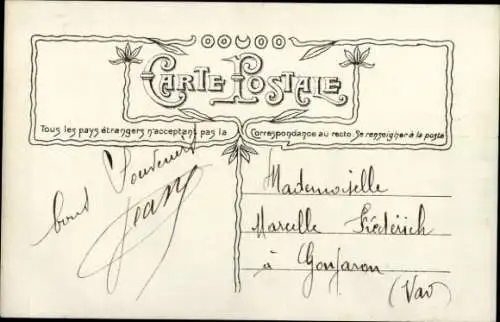 CARTE POSTALE
Tous les pays étrangers n'acceptant pas la Correspondance au recto Se renseigner à la poste
bons Souvenirs
Jean
Mademoiselle
Marcelle Fréderich
à Gonfaron
(Var)